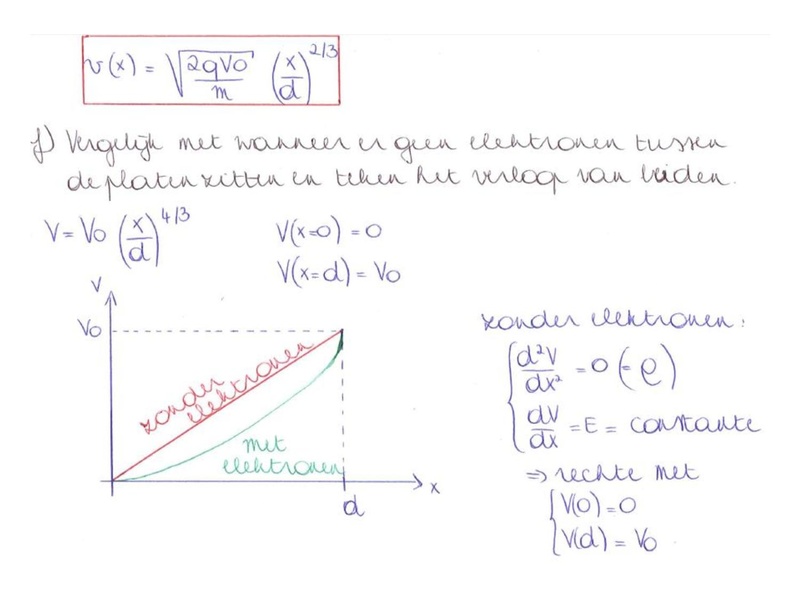 v(x) = √(2qV0/m) (x/d)^2/3
f) Vergelijk met wanneer er geen elektronen tussen
de platen zitten en teken het verloop van beiden.
V = V0 (x/d)^4/3
V(x=0) = 0
V(x=d) = V0
V
V0
zonder
elektronen
met
elektronen
x
d
zonder elektronen:
d²V/dx² = 0 (=ρ)
dV/dx = E = constante
⇒ rechte met
V(0) = 0
V(d) = V0